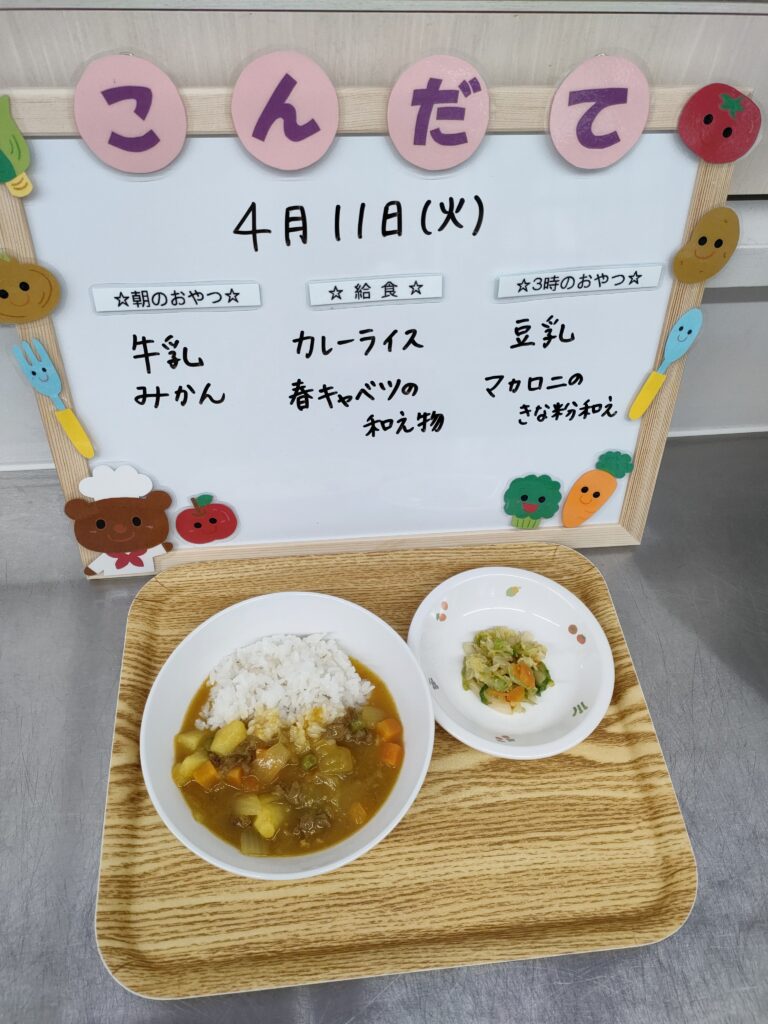 こんだて
4月11日(火)
☆朝のおやつ☆
牛乳
みかん
☆給食☆
カレーライス
春キャベツの
和え物
☆3時のおやつ☆
豆乳
マカロニの
きな粉和え